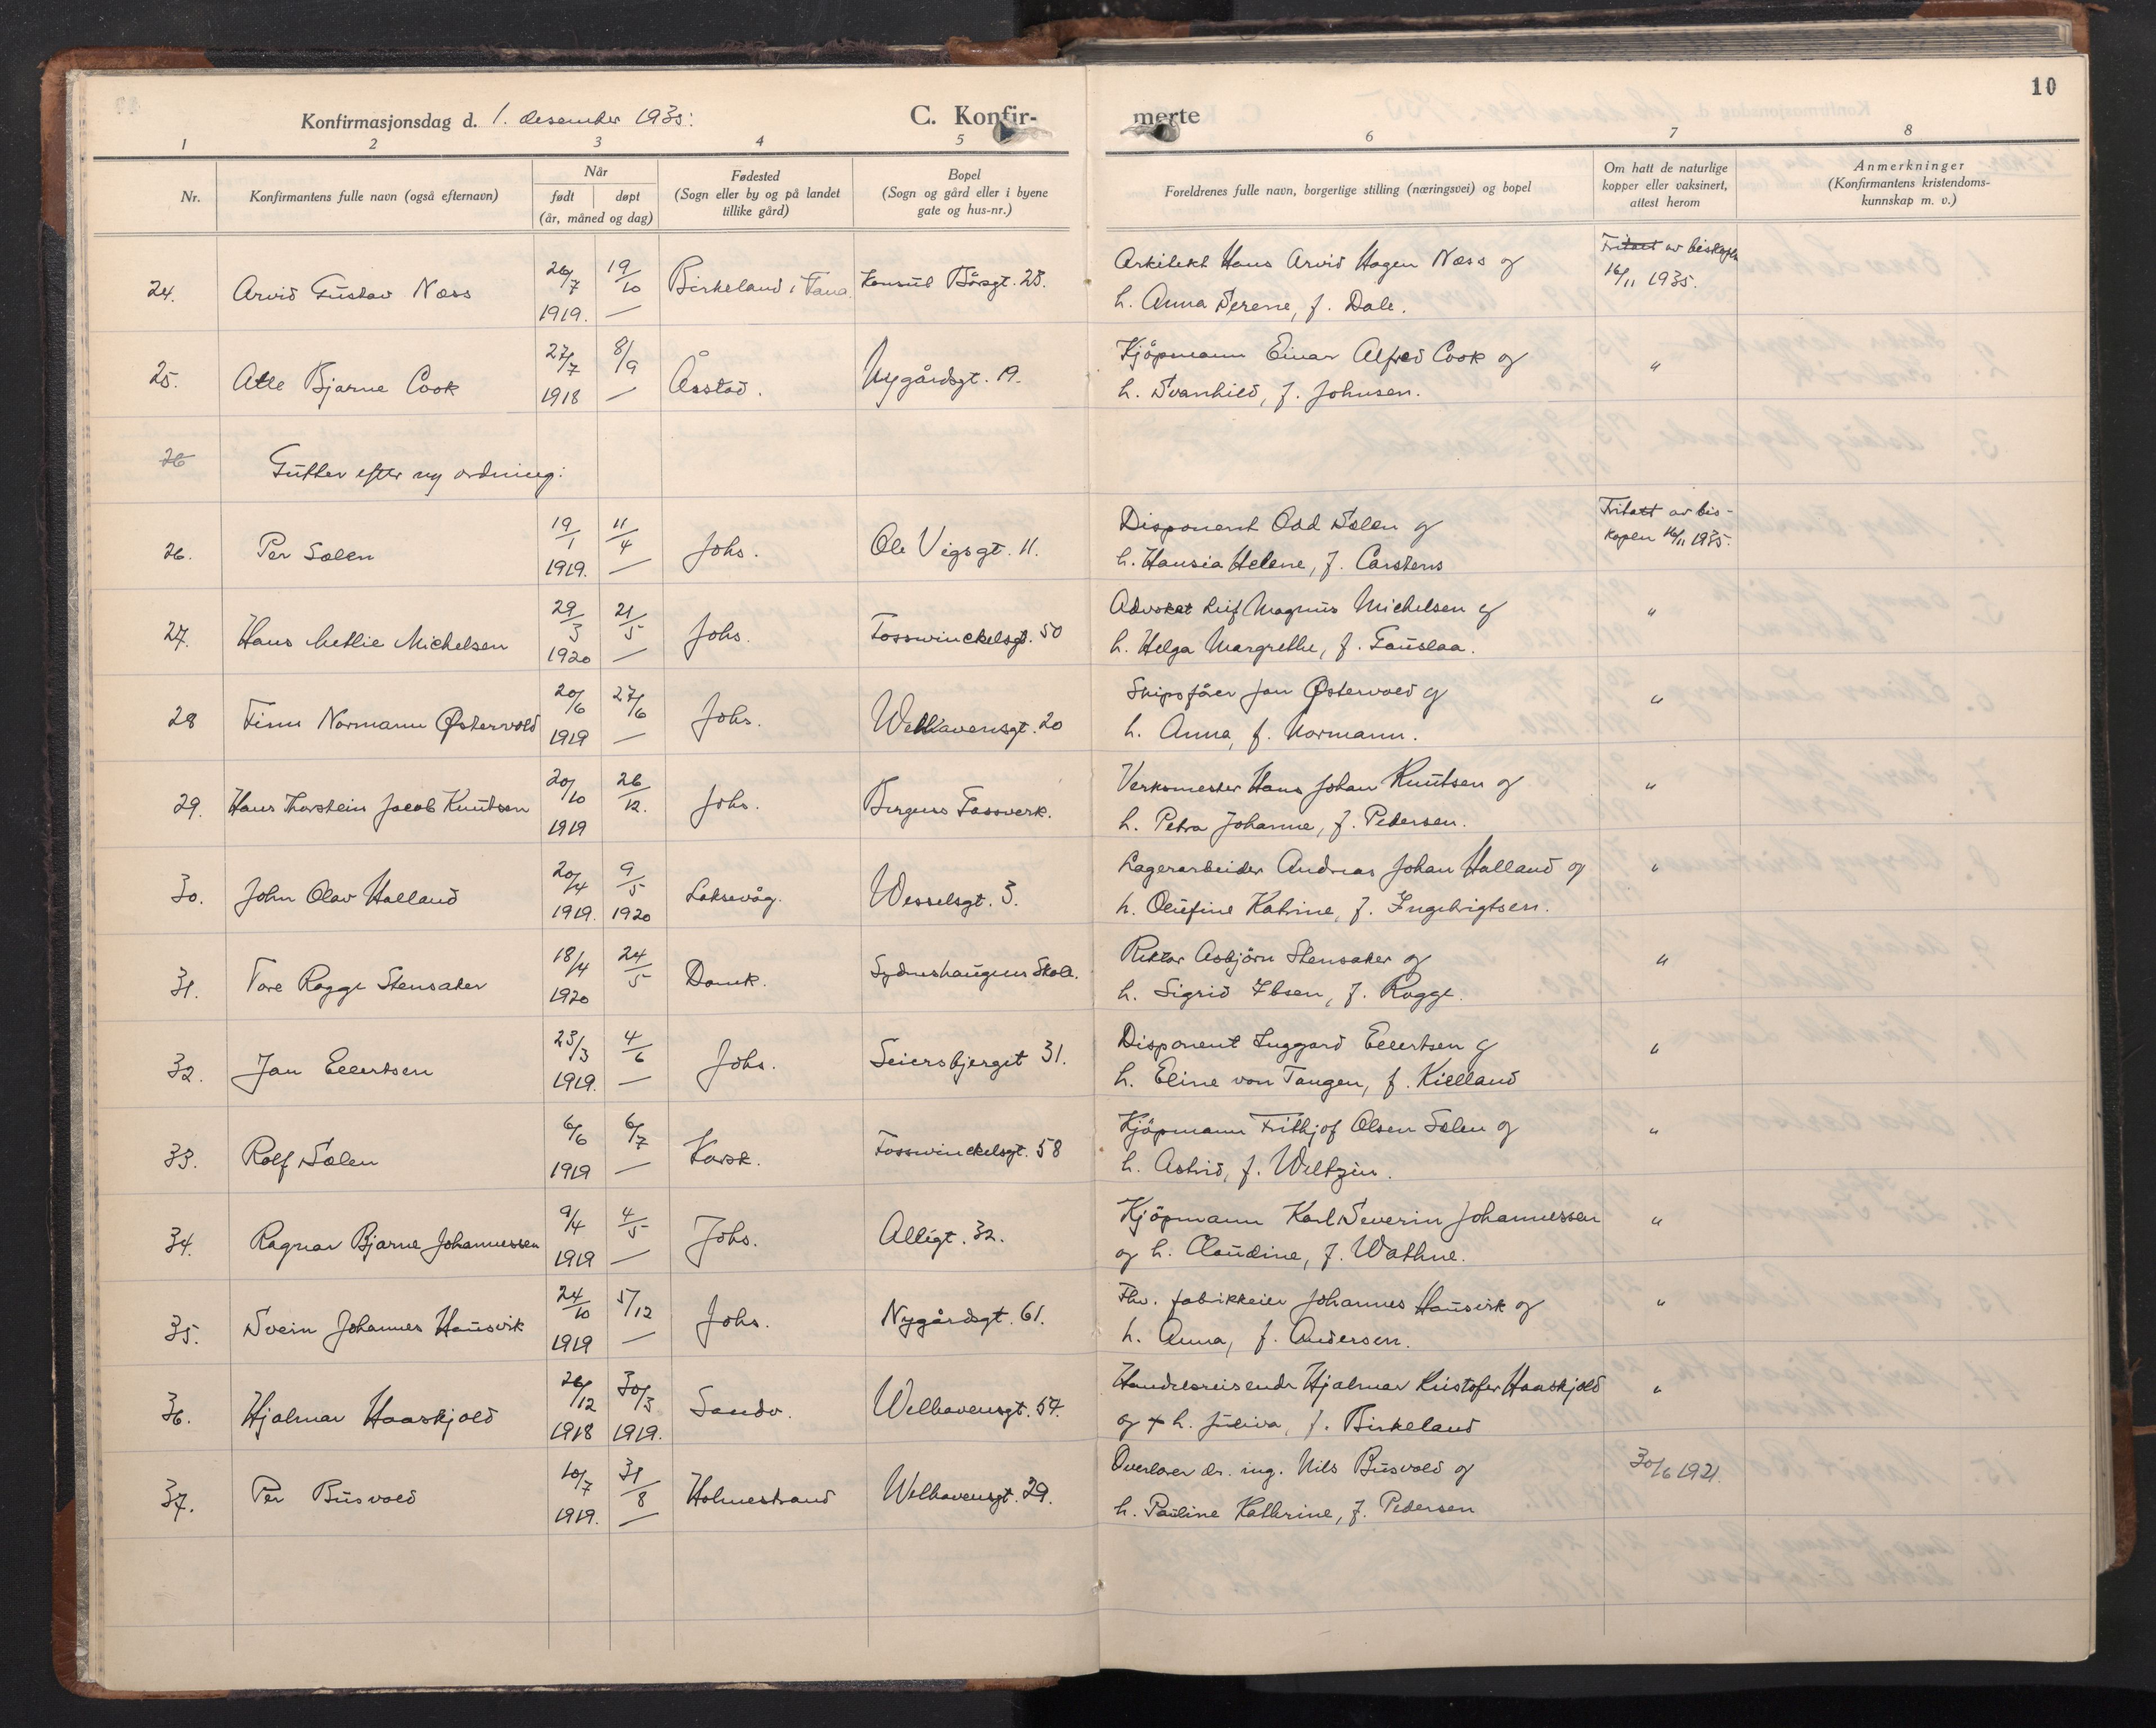 10
Konfirmasjonsdag d. 1. desember 1935.
C. Konfir-
merte
1 2 3 4 5 6 7 8
Nr.
Konfirmantens fulle navn (også efternavn)
Når
født døpt
(år, måned og dag)
Fødested
(Sogn eller by og på landet
tillike gård)
Bopel
(Sogn og gård eller i byene
gate og hus-nr.)
Foreldrenes fulle navn, borgertige stilling (næringsvei) og bopel
Om hatt de naturlige
kopper eller vaksinert,
attest herom
Anmerkninger
(Konfirmantens kristendoms-
kunnskap m. v.)
24. Arvid Gustav Næss 26/7 1919. 19/10 — Birkeland i Fana. Konsul Børsgt. 28. Arkitekt Hans Arvid Hagen Næss og Fritatt av biskopen
h. Anna Serene, f. Dale. 16/11 1935.
25. Atle Bjarne Cook 27/7 1918 8/9 — Åsstad. Nygårdsgt. 19. Kjöpmann Einar Alfred Cook og "
h. Svanhild, f. Johnsen.
26 Gutter efter ny ordning:
26. Per Sælen 19/1 1919. 11/4 — Johs. Ole Vigsgt. 11. Disponent Odd Sælen og Fritatt av bis-
h. Hansia Helene, f. Carstens kopen 16/11 1935.
27. Hans Meltie Michelsen 29/3 1920 21/5 — Johs. Fosswinckelsgt. 50 Advokat Leif Magnus Michelsen og "
h. Helga Margrethe, f. Fauslaa.
28 Finn Normann Østervold 20/6 1919 27/6 — Johs. Welhavensgt. 20 Skipsfører Jan Østervold og "
h. Anna, f. Normann.
29. Hans Thorstein Jacob Knutsen 20/10 1919 26/12. Johs. Bergens Gassverk. Verksmester Hans Johan Knutsen og "
h. Petra Johanne, f. Pedersen.
30. John Olav Halland 20/4 1919. 9/5 1920 Laksevåg. Wesselsgt. 3. Lagerarbeider Andreas Johan Halland og "
h. Olufine Katrine, f. Ingebrigtsen.
31. Tore Rogge Stensaker 18/4 1920 24/5 Domk. Sydneshaugens Skole. Rektor Asbjörn Stensaker og "
h. Sigrid Ibsen, f. Rogge.
32. Jan Ellertsen 23/3 1919. 4/6 — Johs. Seiersbjerget 31. Disponent Inggard Ellertsen og "
h. Eline von Tangen, f. Kielland
33. Rolf Sælen 6/6 1919 6/7 — Korsk. Fosswinckelsgt. 58 Kjöpmann Frithjof Olsen Sælen og "
h. Astrid, f. Weltzin.
34. Ragnar Bjarne Johannessen 9/4 1919 4/5 — Johs. Allégt. 32. Kjöpmann Karl Severin Johannessen "
og h. Claudine, f. Wathne.
35. Svein Johannes Hausvik 24/10 1919 5/12 — Johs. Nygårdsgt. 61. Fhv. fabrikkeier Johannes Hausvik og "
h. Anna, f. Andersen.
36. Hjalmar Haaskjold 26/12 1918 30/3 1919. Sandv. Welhavensgt. 57. Handelsreisende Hjalmar Kristofer Haaskjold "
og h. Juliva, f. Birkeland
37. Per Busvold 10/7 1919. 31/8 — Holmestrand Welhavensgt. 29. Overlærer dr. ing. Nils Busvold og 30/6 1921.
h. Pauline Kathrine, f. Pedersen